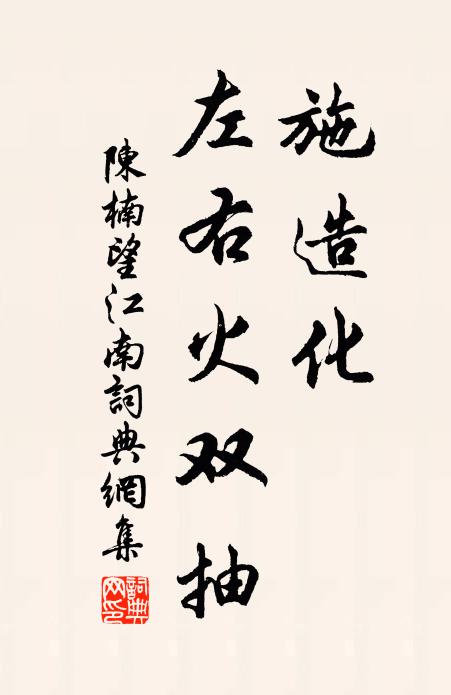 施造化
左右火双抽
陳楠望江南詞典網集
詞典网印